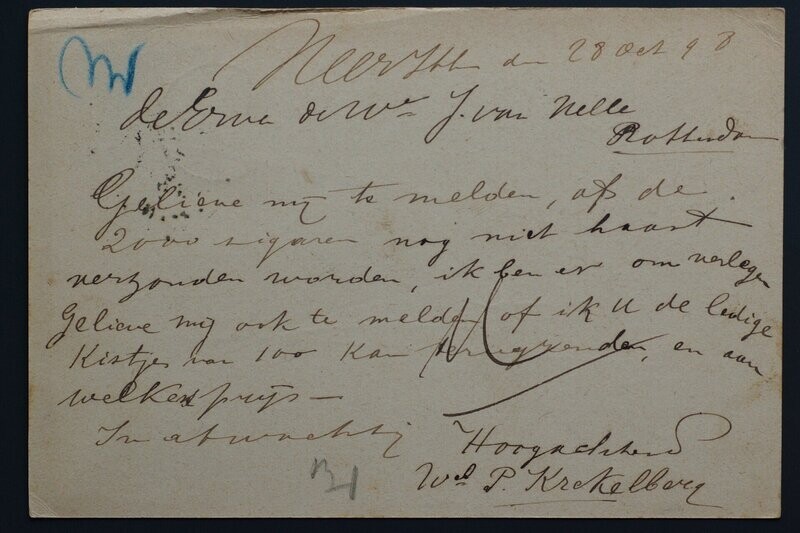 Neeritter den 28 Oct 98
de Erven de We J. van Nelle
Rotterdam
Gelieve mij te melden, of de
2000 sigaren nog niet haast
verzonden worden, ik ben er om verlegen
Gelieve mij ook te melden of ik U de ledige
Kistjes van 100 kan terugzenden, en aan
welken prijs —
In afwachting
Hoogachtend
Wed P. Krekelberg